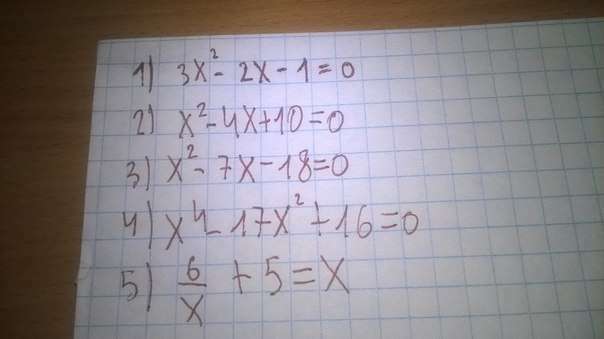 1) 3x² - 2x - 1 = 0
2) x² - 4x + 10 = 0
3) x² - 7x - 18 = 0
4) x⁴ - 17x² + 16 = 0
5) 6/x + 5 = x